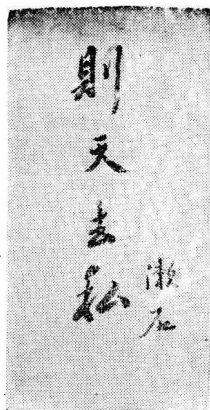 則天去私
漱石